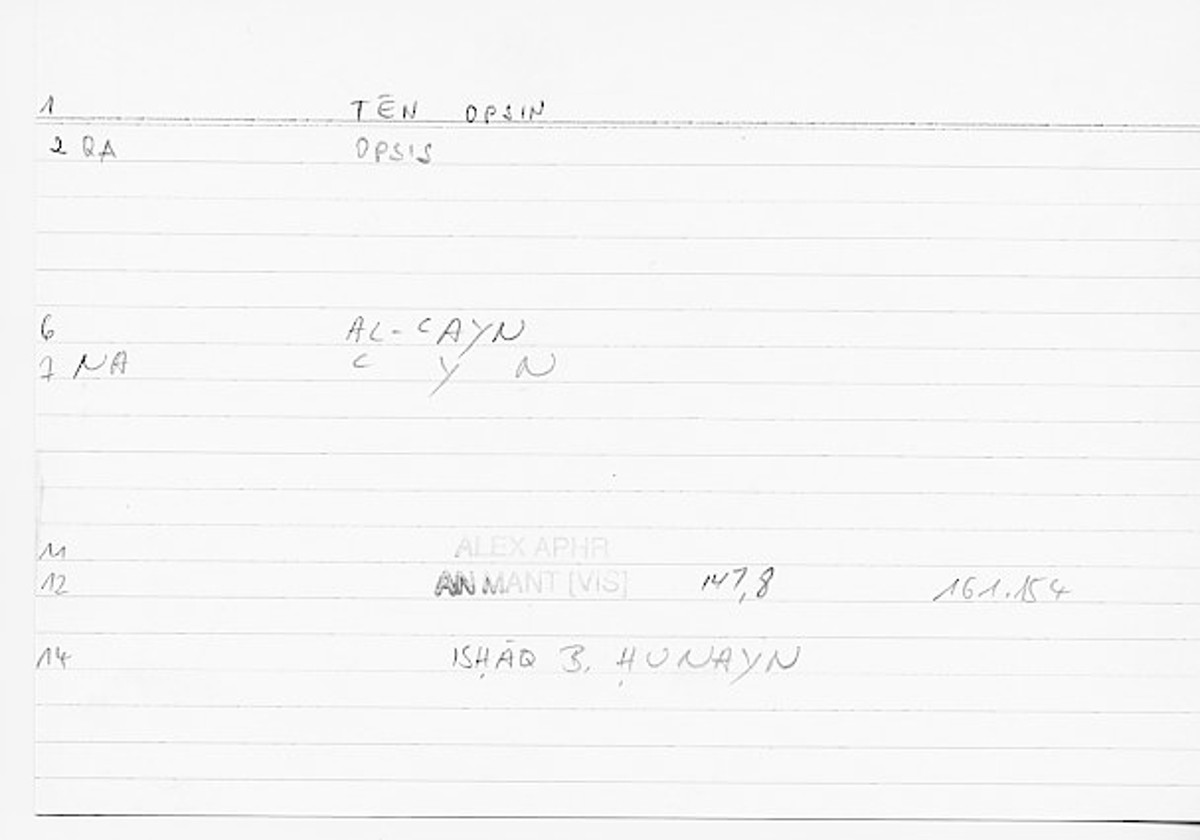 1 TĒN OPSIN
2 QA OPSIS
6 AL-ʿAYN
7 NA ʿ Y N
11 ALEX APHR
12 AN MANT [VIS] 147,8 161.154
14 ISḤĀQ B. ḤUNAYN